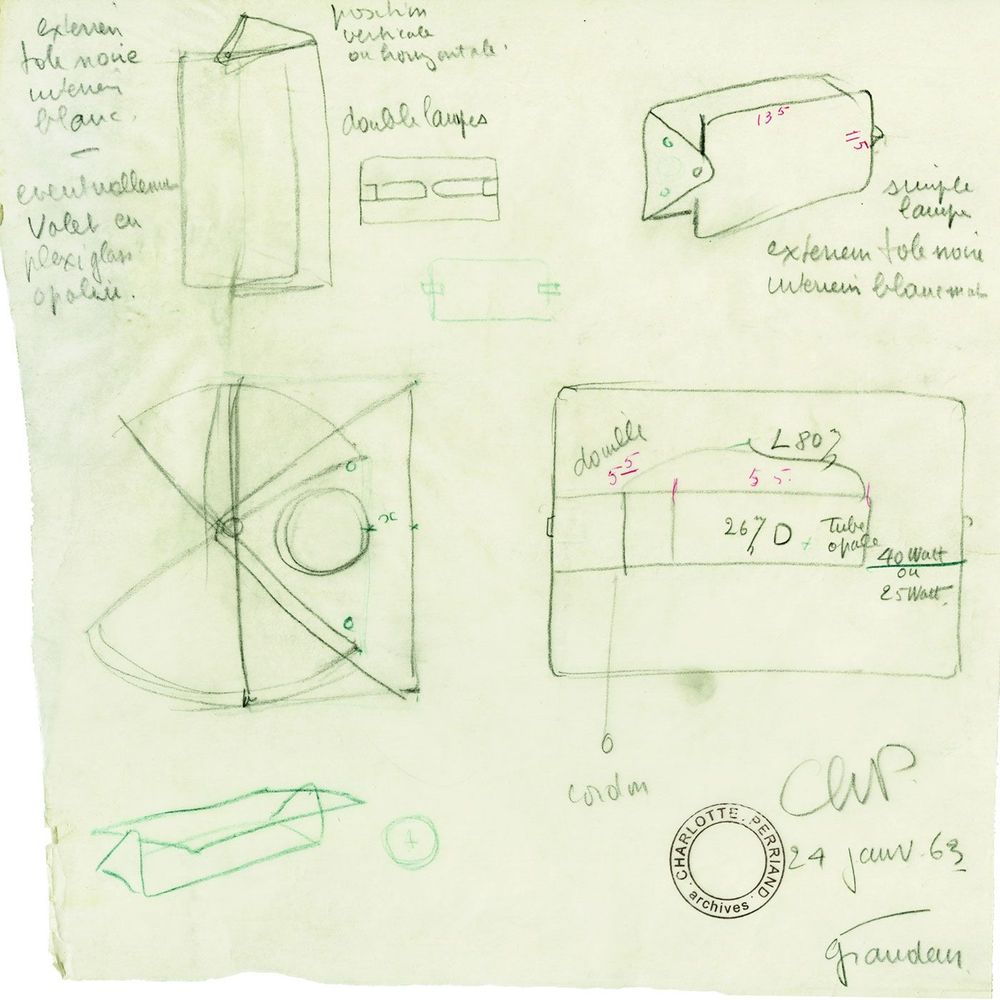 exterieur
tole noire
interieur
blanc.
eventuellement
Volet en
plexiglass
opalin.
position
verticale
ou horizontale.
double lampes
135
115
simple
lampe
exterieur tole noire
interieur blanc mat
x
douille
55
L 80
55.
26 D
Tube
opale
40 Watt
ou
25 Watt.
cordon
ChP.
CHARLOTTE PERRIAND
archives
24 janv. 63